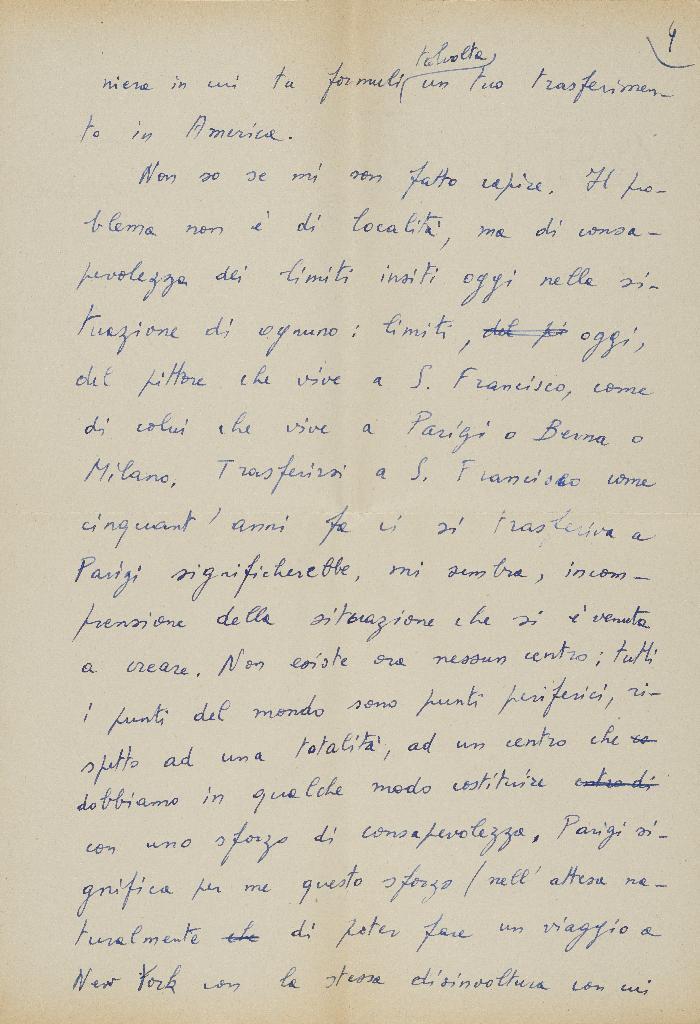 4
talvolta
niera in cui tu formuli un tuo trasferimen-
to in America.
Non so se mi son fatto capire. Il pro-
blema non è di località, ma di consa-
pevolezza dei limiti insiti oggi nella si-
tuazione di ognuno: limiti, del pi oggi,
del pittore che vive a S. Francisco, come
di colui che vive a Parigi o Berna o
Milano. Trasferirsi a S. Francisco come
cinquant'anni fa ci si trasferiva a
Parigi significherebbe, mi sembra, incom-
prensione della situazione che si è venuta
a creare. Non esiste ora nessun centro; tutti
i punti del mondo sono punti periferici, ri-
spetto ad una totalità, ad un centro che co
dobbiamo in qualche modo costituire entro di
con uno sforzo di consapevolezza. Parigi si-
gnifica per me questo sforzo (nell'attesa na-
turalmente che di poter fare un viaggio a
New York con la stessa disinvoltura con cui